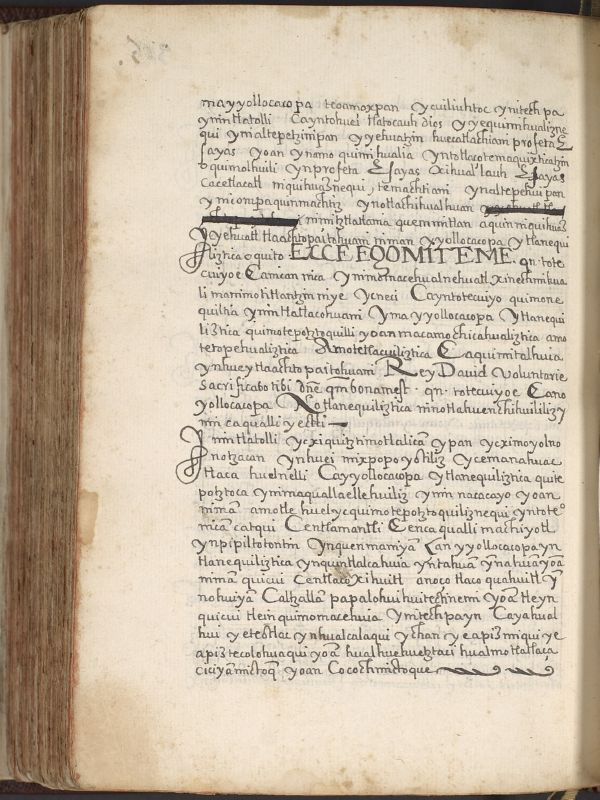 ma yyollocacopa teoamoxpan ycuiliuhtoc ynitechpa
ynin tlatolli Ca yntohuei tlatocauh dios yyequimihualizne
qui ymaltepetzinpan yyehuatzin huecatlachiani profeta E
sayas yoan ynamo quimihualia yntotlacotemaquixticatzin
oquimolhuili ynprofeta Esayas Xihuallauh Esayas
Cacetlacatl niquihuasnequi, temachtiani ynaltepehuipan
ynic onpa quinmachtiz ynotlachihualhuan
inimitztlatlania quemmitlan aquin niquihuas
Yyehuatl tlaachtopaitohuani niman yyollocacopa ytlanequi
liztica oquito. ECCE EGO MITE ME. qn. tote
cuiyoe Canican nica ynimomacehualnehuatl xinechmihua
li manimotitlantzin niye ycneci Ca yntotecuiyo quimone
quiltia ynintlatlacohuani yma yyollocacopa ytlanequi
liztica quimotepotztoquilli yoan macamo chicahualiztica amo
tetopehualiztica Amotetlacuiliztica Ca quimitalhuia
ynhuey tlaachtopaitohuani Rey David Voluntarie
Sacrificabo tibi dñe qm bonum est. qn. totecuiyoe Cano
yollocacopa Notlanequiliztica nimotlahuenchihuililiz y
nin ca qualli yectli
Inintlatolli ycxiquitzinotlalicã ypan ycximoyolno
notzacan ynhuei mixpopoyotiliz ycemanahuac
tlaca huelnelli Ca yyollocacopa ytlanequiliznica quite
potztoca ynimaquallaellehuiliz ynin nacacayo yoan
nimã amotle huel yc quimotepotztoquiliznequi yntoteo
micã catqui Centlamantli Cenca qualli machiyotl
ynpipiltotontin ynquenmaniyã Can yyollocacopa yn
tlanequiliztica ynquintlalcahuia yntahuã ynnahua yoã
niman quicui centlacoxihuitl anoço tlacoquahuitl yn
nohuiyan Caltzallã papalohuihuitecinemi yoã tleyn
quicui tleinquimomacehuia ynitechpayn Ca yahual
hui yeteotlac ynhualcalaqui ychan yeapizmiqui ye
apiztecolohuaqui yoã hualhuehuetztaci hualmotlatlaça
ciciyãmictoq yoan Cocochmictoque